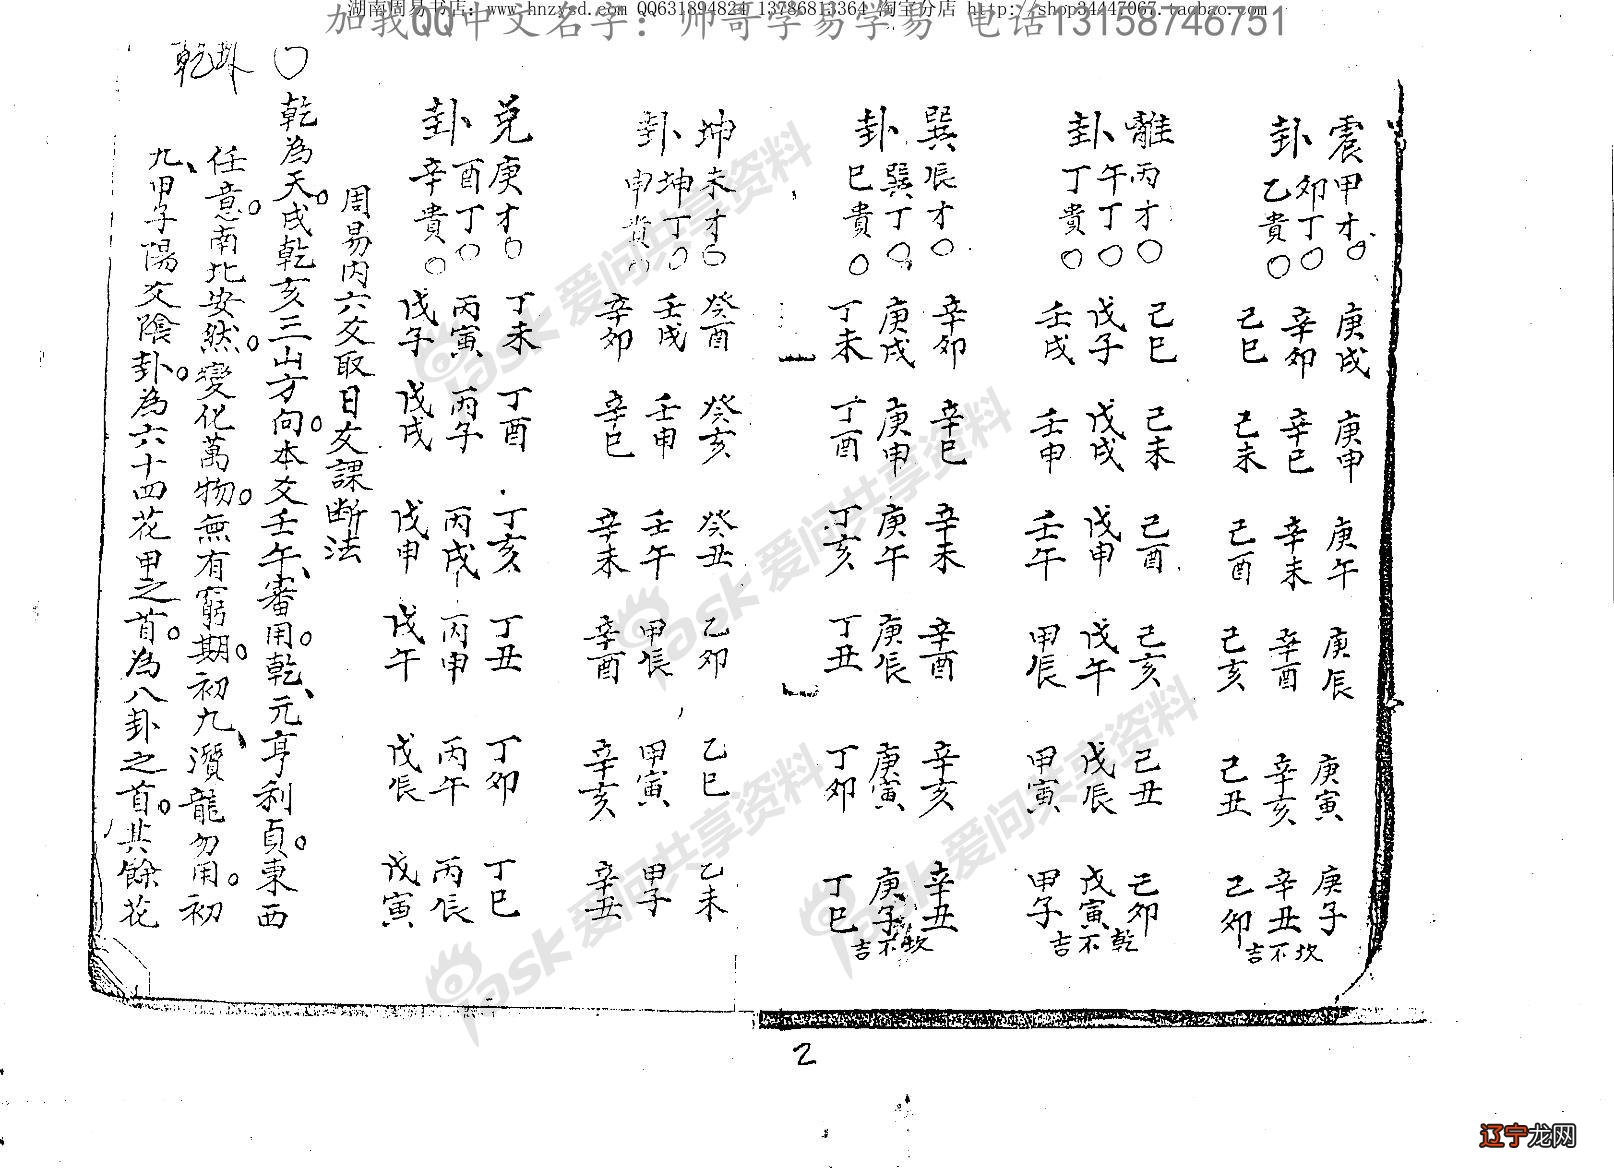 湖南周易书店：www.hnzysd.com QQ631894824 13786813364 淘宝分店 http://shop34447067.taobao.com
加我QQ中文名字：帅哥学易学易 电话13158746751
震甲才○ 庚戌 庚申 庚午 庚辰 庚寅 庚子
卦 卯丁○ 辛卯 辛巳 辛未 辛酉 辛亥 辛丑
乙貴○ 己巳 己未 己酉 己亥 己丑 己卯
坎不吉
離丙才○ 己巳 己未 己酉 己亥 己丑 己卯
卦 午丁○ 戊子 戊戌 戊申 戊午 戊辰 戊寅
丁貴○ 壬戌 壬申 壬午 甲辰 甲寅 甲子
乾不吉
巽辰才○ 辛卯 辛巳 辛未 辛酉 辛亥 辛丑
卦 巽丁○ 庚戌 庚申 庚午 庚辰 庚寅 庚子
巳貴○ 丁未 丁酉 丁亥 丁丑 丁卯 丁巳
坎不吉
坤未才○ 癸酉 癸亥 癸丑 乙卯 乙巳 乙未
卦 坤丁○ 壬戌 壬申 壬午 甲辰 甲寅 甲子
申貴○ 辛卯 辛巳 辛未 辛酉 辛亥 辛丑
兌庚才○ 丁未 丁酉 丁亥 丁丑 丁卯 丁巳
卦 酉丁○ 丙寅 丙子 丙戌 丙申 丙午 丙辰
辛貴○ 戊子 戊戌 戊申 戊午 戊辰 戊寅
周易内六爻取日爻課断法
○乾為天。戌乾亥三山方向。本爻壬午、審用。乾、元亨利貞。東西
乾卦
任意。南北安然。變化萬物。無有窮期。初九、潛龍勿用。初
九、甲子陽爻陰卦。為六十四花甲之首。為八卦之首。共餘花
2
爱问共享资料
ask爱问共享资料
ask爱问共享资料
ask爱问共享资料
ask爱问共享资料
辽宁龙网